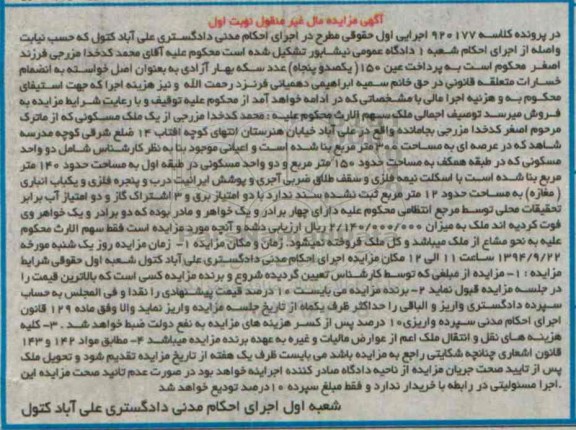 آگهی مزایده مال غیر منقول نوبت اول
در پرونده کلاسه ۹۲۰۱۷۷ اجرایی اول حقوقی مطرح در اجرای احکام مدنی دادگستری علی آباد کتول که حسب نیابت
واصله از اجرای احکام شعبه ۱ دادگاه عمومی نیشابور تشکیل شده است محکوم علیه آقای محمد کدخدا مزرجی فرزند
اصغر محکوم است به پرداخت عین ۱۵۰ (یکصدو پنجاه) عدد سکه بهار آزادی به بعنوان اصل خواسته به انضمام
خسارات متعلقه قانونی در حق خانم سمیه ابراهیمی دهمیانی فرزند رحمت الله و نیز هزینه اجرا که جهت استیفای
محکوم به و هزنیه اجرا مالی با مشخصاتی که در ادامه خواهد آمد از محکوم علیه توقیف و با رعایت شرایط مزایده به
فروش میرسد توصیف اجمالی ملک سهم الارث محکوم علیه : محمد کدخدا مزرجی از یک ملک مسکونی که از ماترک
مرحوم اصغر کدخدا مزرجی بجامانده واقع در علی آباد خیابان هنرستان انتهای کوچه آفتاب ۱۴ ضلع شرقی کوچه مدرسه
شاهد که در عرصه ای به مساحت ۳۰۰ متر مربع بنا شده است و اعیانی موجود بنا به نظر کارشناس شامل دو واحد
مسکونی که در طبقه همکف به مساحت حدود ۱۵۰ متر مربع و دو واحد مسکونی در طبقه اول به مساحت حدود ۱۴۰ متر
مربع بنا شده است با اسکلت نیمه فلزی و سقف طاق ضربی آجری و پوشش ایرانیت درب و پنجره فلزی و یکباب انباری
( مغازه) به مساحت حدود ۱۲ متر مربع ثبت نشده سند ندارد با دو امتیاز برق و ۳ اشتراک گاز و دو امتیاز آب برابر
تحقیقات محلی توسط مرجع انتظامی محکوم علیه دارای چهار برادر و یک خواهر و مادر بوده که دو برادر و یک خواهر وی
فوت کردیه اند ملک به میزان ۲/۱۴۰/۰۰۰/۰۰۰ ریال ارزیابی دشه و آنچه مورد مزایده است فقط سهم الارث محکوم
علیه به نحو مشاع از ملک میباشد و کل ملک فروخته نمیشود. زمان و مکان مزایده ۱- زمان مزایده روز یک شنبه مورخه
۱۳۹۴/۹/۲۲ ساعت ۱۱ الی ۱۲ مکان مزایده اجرای احکام مدنی دادگستری علی آباد کتول شعبه اول حقوقی شرایط
مزایده : ۱- مزایده از مبلغی که توسط کارشناس تعیین گردیده شروع و برنده مزایده کسی است که بالاترین قیمت را
در جلسه مزایده قبول نماید ۲- برنده مزایده می بایست ۱۰ درصد قیمت پیشنهادی را نقدا و فی المجلس به حساب
سپرده دادگستری واریز و الباقی را حداکثر ظرف یکماه از تاریخ جلسه مزایده واریز نماید والا وفق ماده ۱۲۹ قانون
اجرای احکام مدنی سپرده واریزی ۱۰ درصد پس از کسر هزینه های مزایده به نفع دولت ضبط خواهد شد . ۳- کلیه
هزینه های نقل و انتقال ملک اعم از عوارض مالیات و غیره به عهده برنده مزایده میباشد ۴- مطابق مواد ۱۴۲ و ۱۴۳
قانون اشعاری چنانچه شکایتی راجع به مزایده باشد می بایست ظرف یک هفته از تاریخ مزایده تقدیم شود و تحویل ملک
پس از تایید صحت جریان مزایده از ناحیه دادگاه صادر کننده اجراییه خواهد بود در صورت عدم تائید صحت مزایده این
.اجرا مسئولیتی در رابطه با خریدار ندارد و فقط مبلغ سپرده ۱۰درصد تودیع خواهد شد
شعبه اول اجرای احکام مدنی دادگستری علی آباد کتول